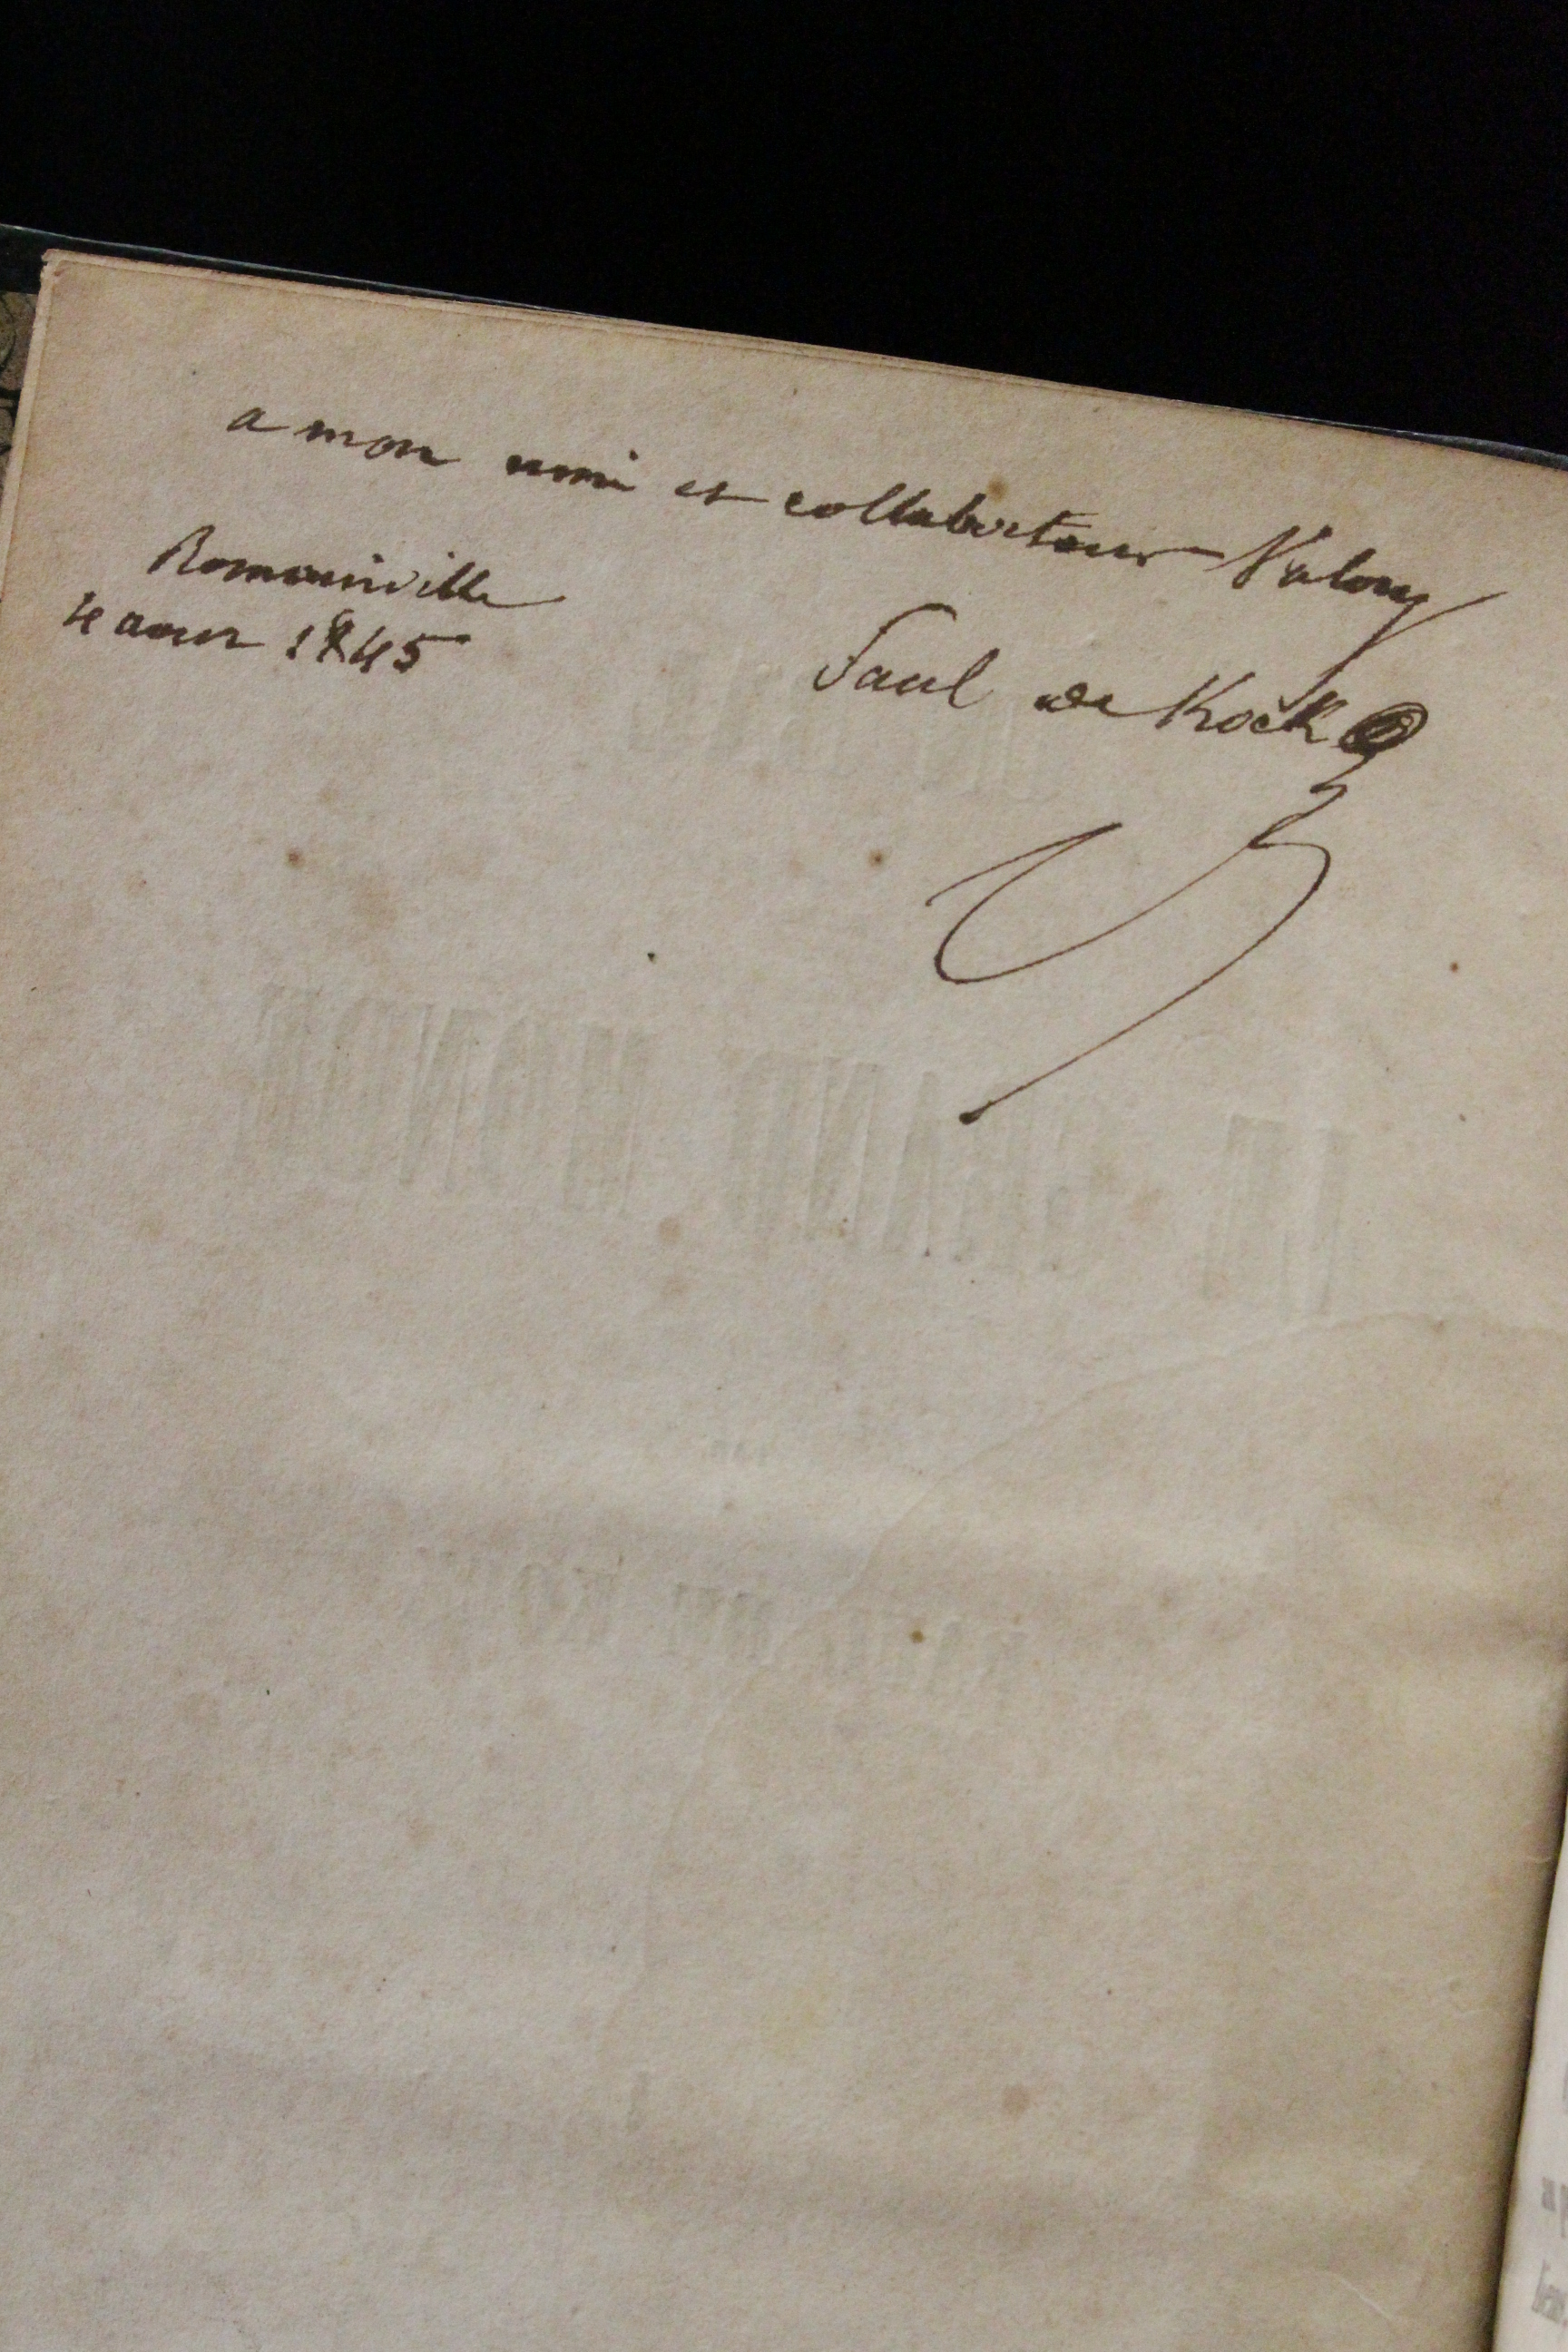 a mon ami et collaborateur Valory
Romainville
1845
Paul de Kock